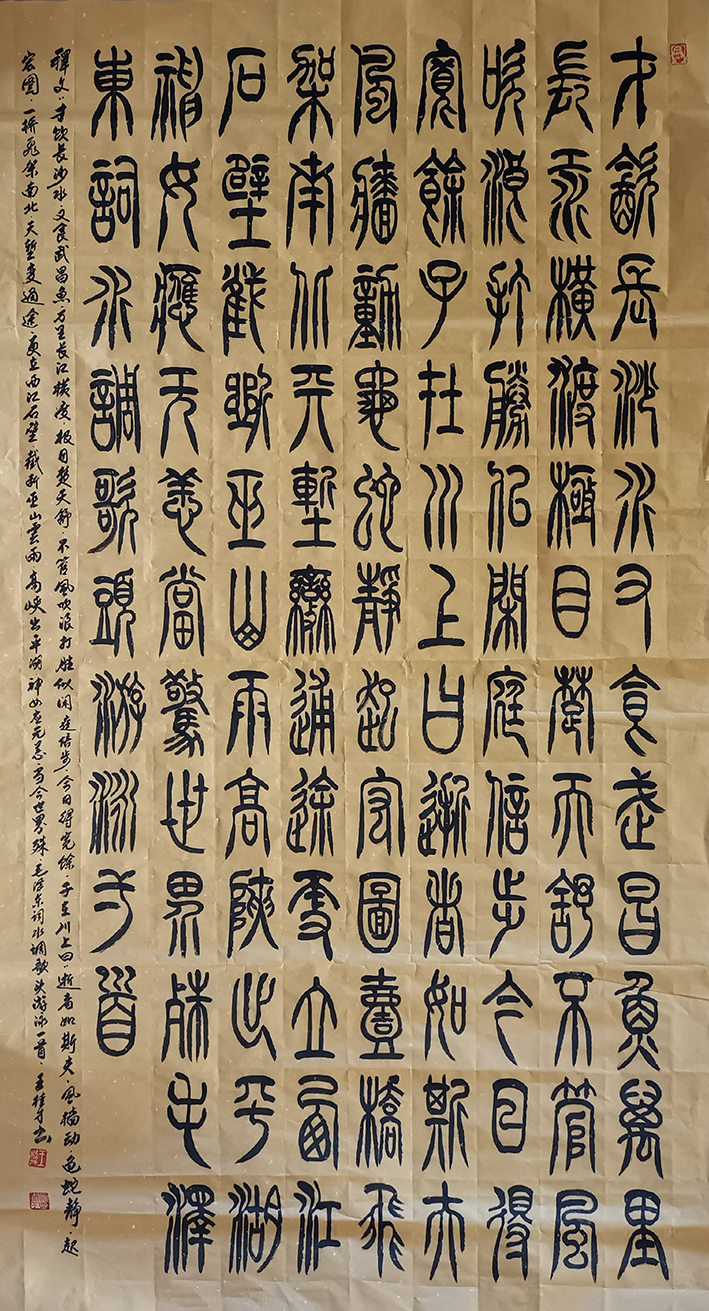 才飲長沙水又食武昌魚萬里
長永橫渡極目楚天舒不管風
吹浪打勝似閑庭信步今日得
寬餘子在川上曰逝者如斯夫
風檣動龜蛇靜起宏圖壹橋飛
架南北天塹變通途更立西江
石壁截斷巫山雨高峽出平湖
神女應无恙當驚世界殊毛澤
東詞水調歌頭游泳弌首
釋文·才飲長沙水·又食武昌魚·万里長江橫度·极目楚天舒·不管風吹浪打·胜似闲庭信步·今日得宽馀·子在川上曰·逝者如斯夫·風檣动·龟蛇静·起
宏图·一桥飛架南北·天塹变通途·更立西江石壁·截断巫山雲雨·高峡出平湖·神女应无恙·当今世界殊·毛泽东词水调歌头游泳一首·王桂才书